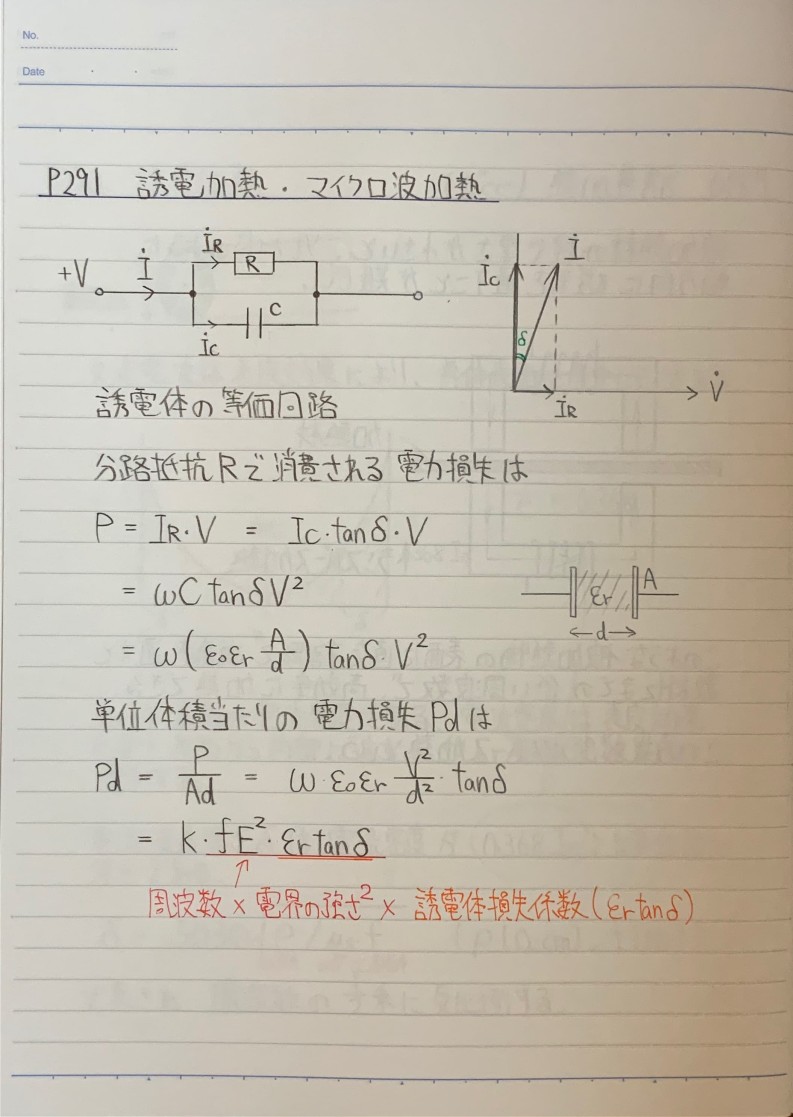 No.
Date
P291 誘電加熱・マイクロ波加熱
+V İ İR R
C
İC
İC İ
δ
İR V̇
誘電体の等価回路
分路抵抗Rで消費される電力損失は
P = IR・V = IC・tanδ・V
= ωC tanδV²
εr A
d
= ω(ε₀εr A/d) tanδ・V²
単位体積当たりの電力損失Pdは
Pd = P/Ad = ω・ε₀εr V²/d²・tanδ
= k・fE²・εr tanδ
↑
周波数×電界の強さ²×誘電体損失係数(εr tanδ)